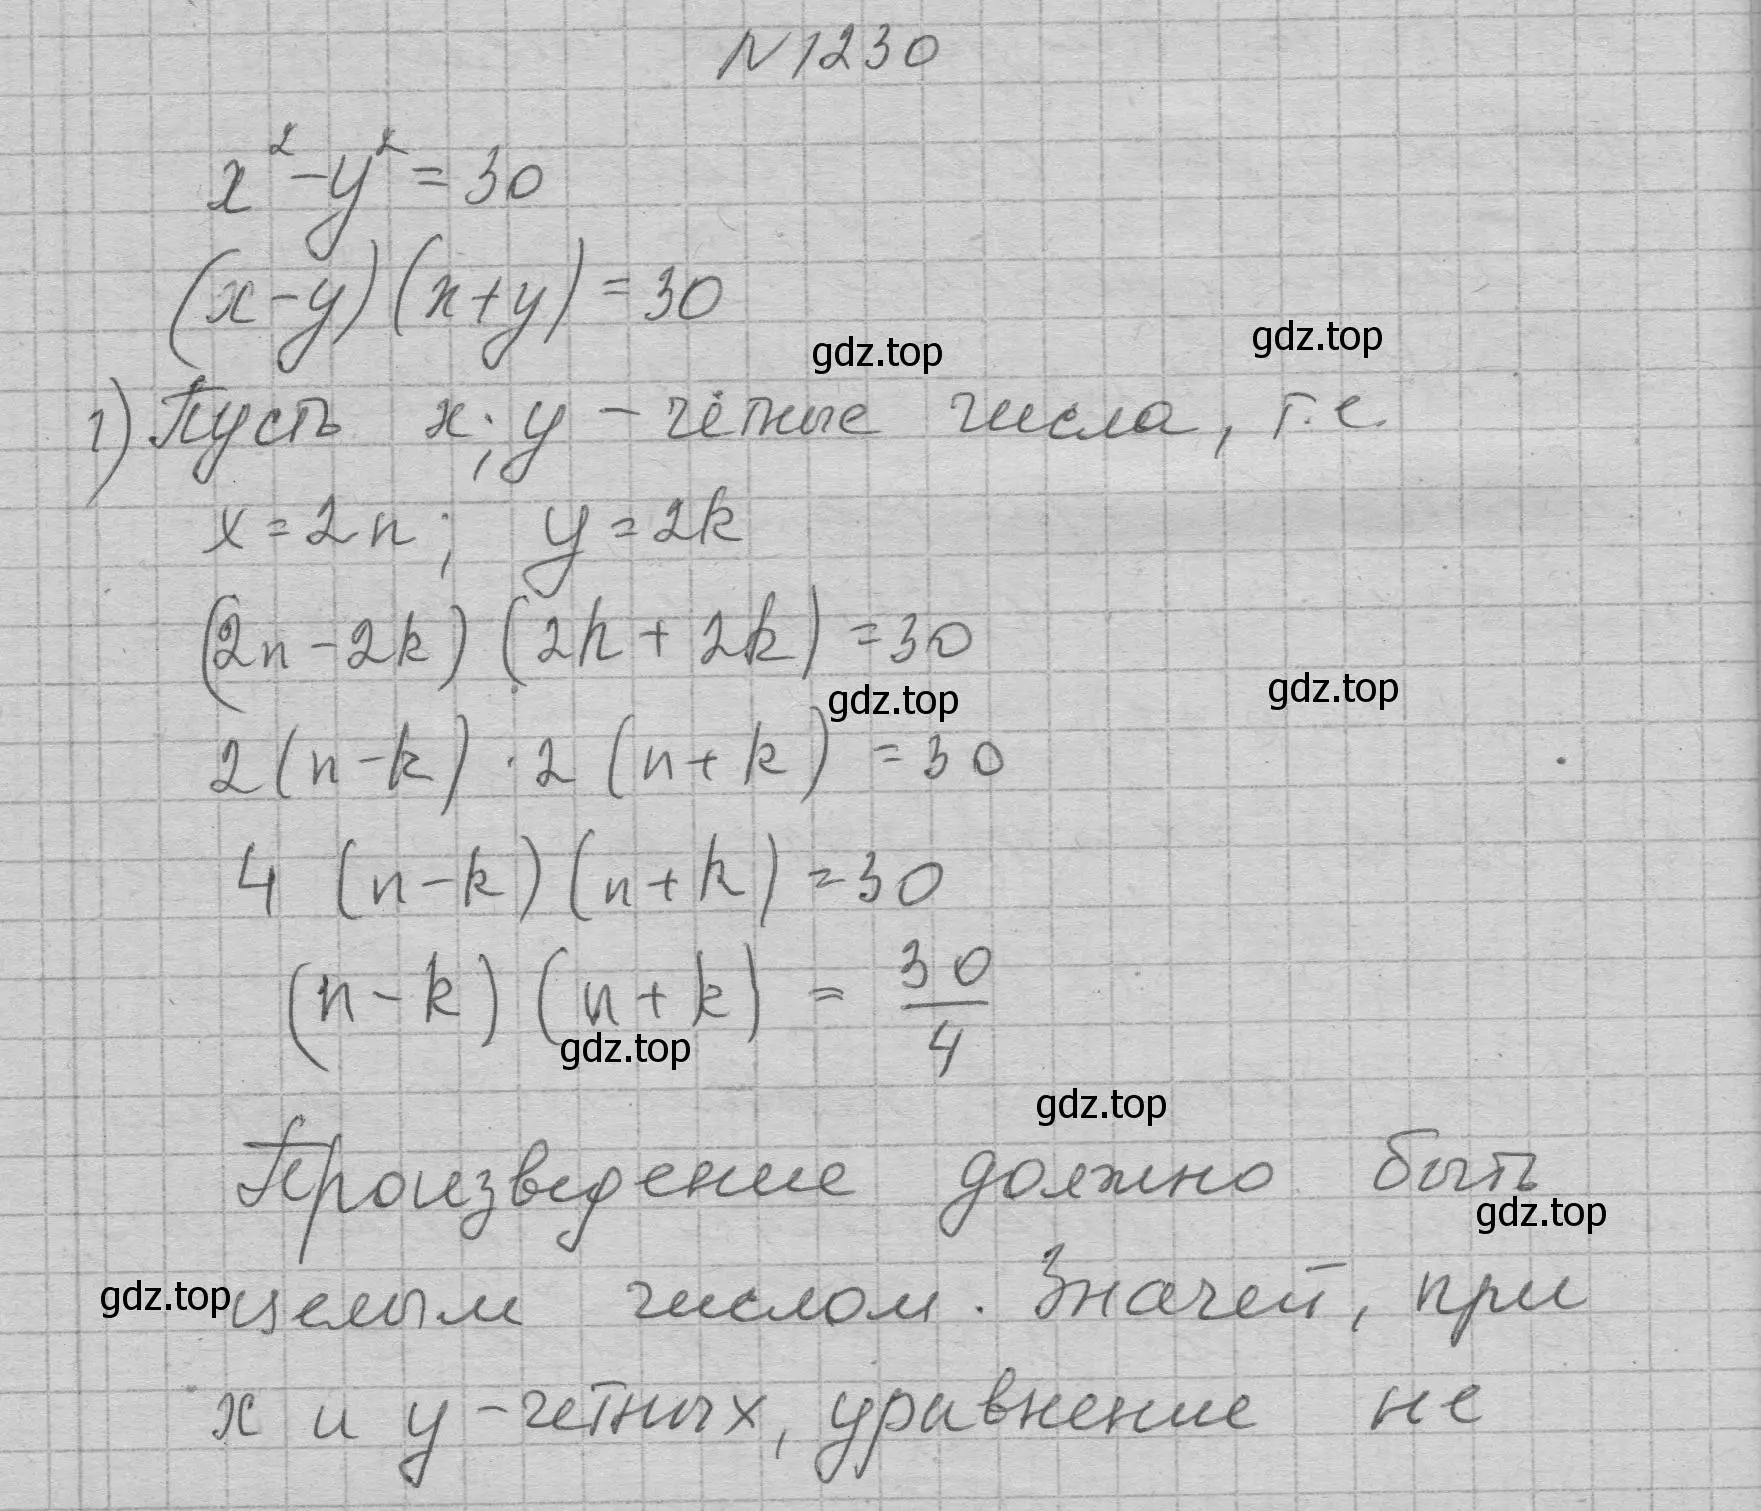 N 1230
x² - y² = 30
(x - y)(x + y) = 30
gdz.top gdz.top
1) Пусть x; y - чётные числа, т.е.
x = 2n; y = 2k
(2n - 2k)(2n + 2k) = 30
gdz.top gdz.top
2(n - k) · 2(n + k) = 30
4 (n - k)(n + k) = 30
(n - k)(n + k) = 30/4
gdz.top
gdz.top
Произведение должно быть
gdz.top
gdz.top целым числом. Значит, при
x и y - четных, уравнение не